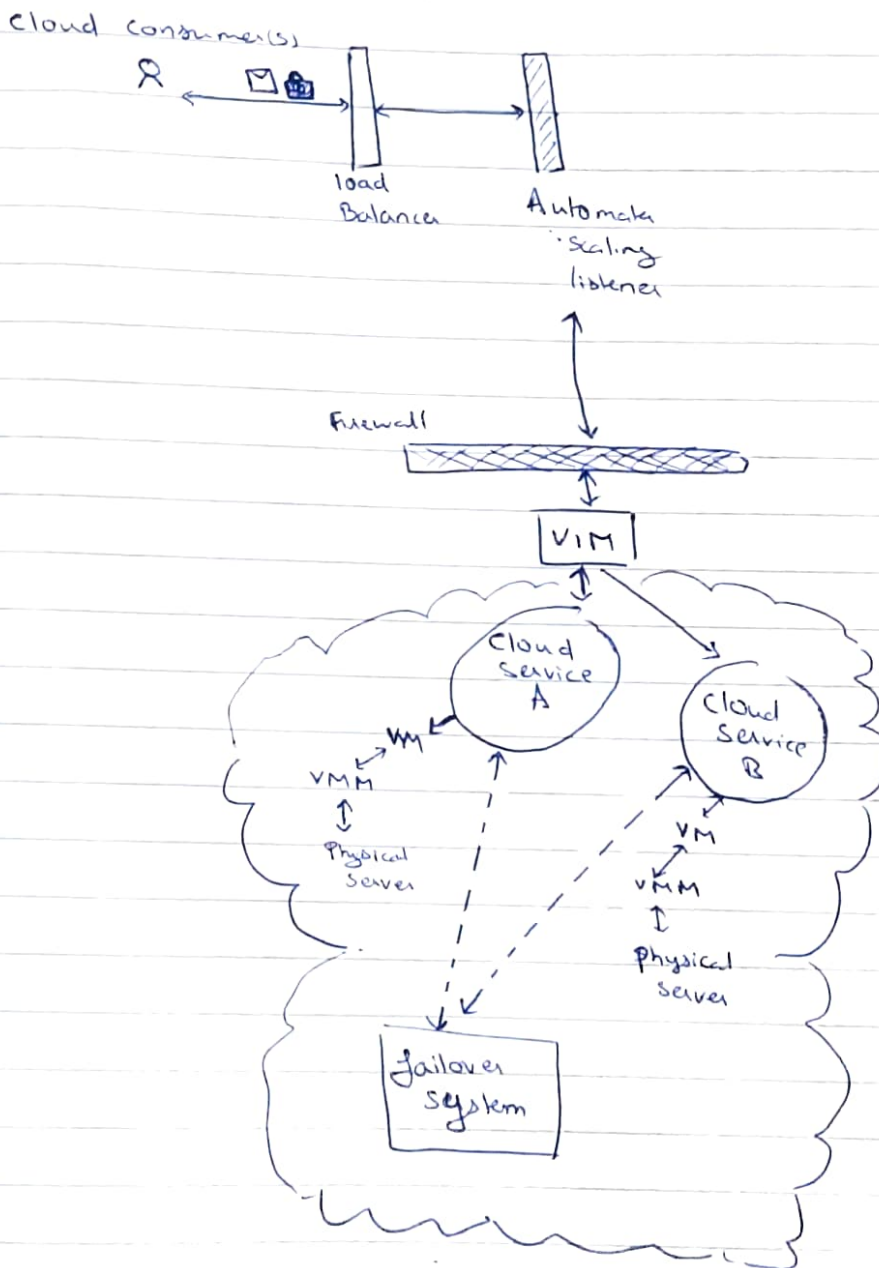 Cloud consumer(s)
load
Balancer
Automata
scaling
listener
Firewall
VIM
Cloud
Service
A
Cloud
Service
B
VM
VMM
Physical
Server
VM
VMM
Physical
Server
failover
system